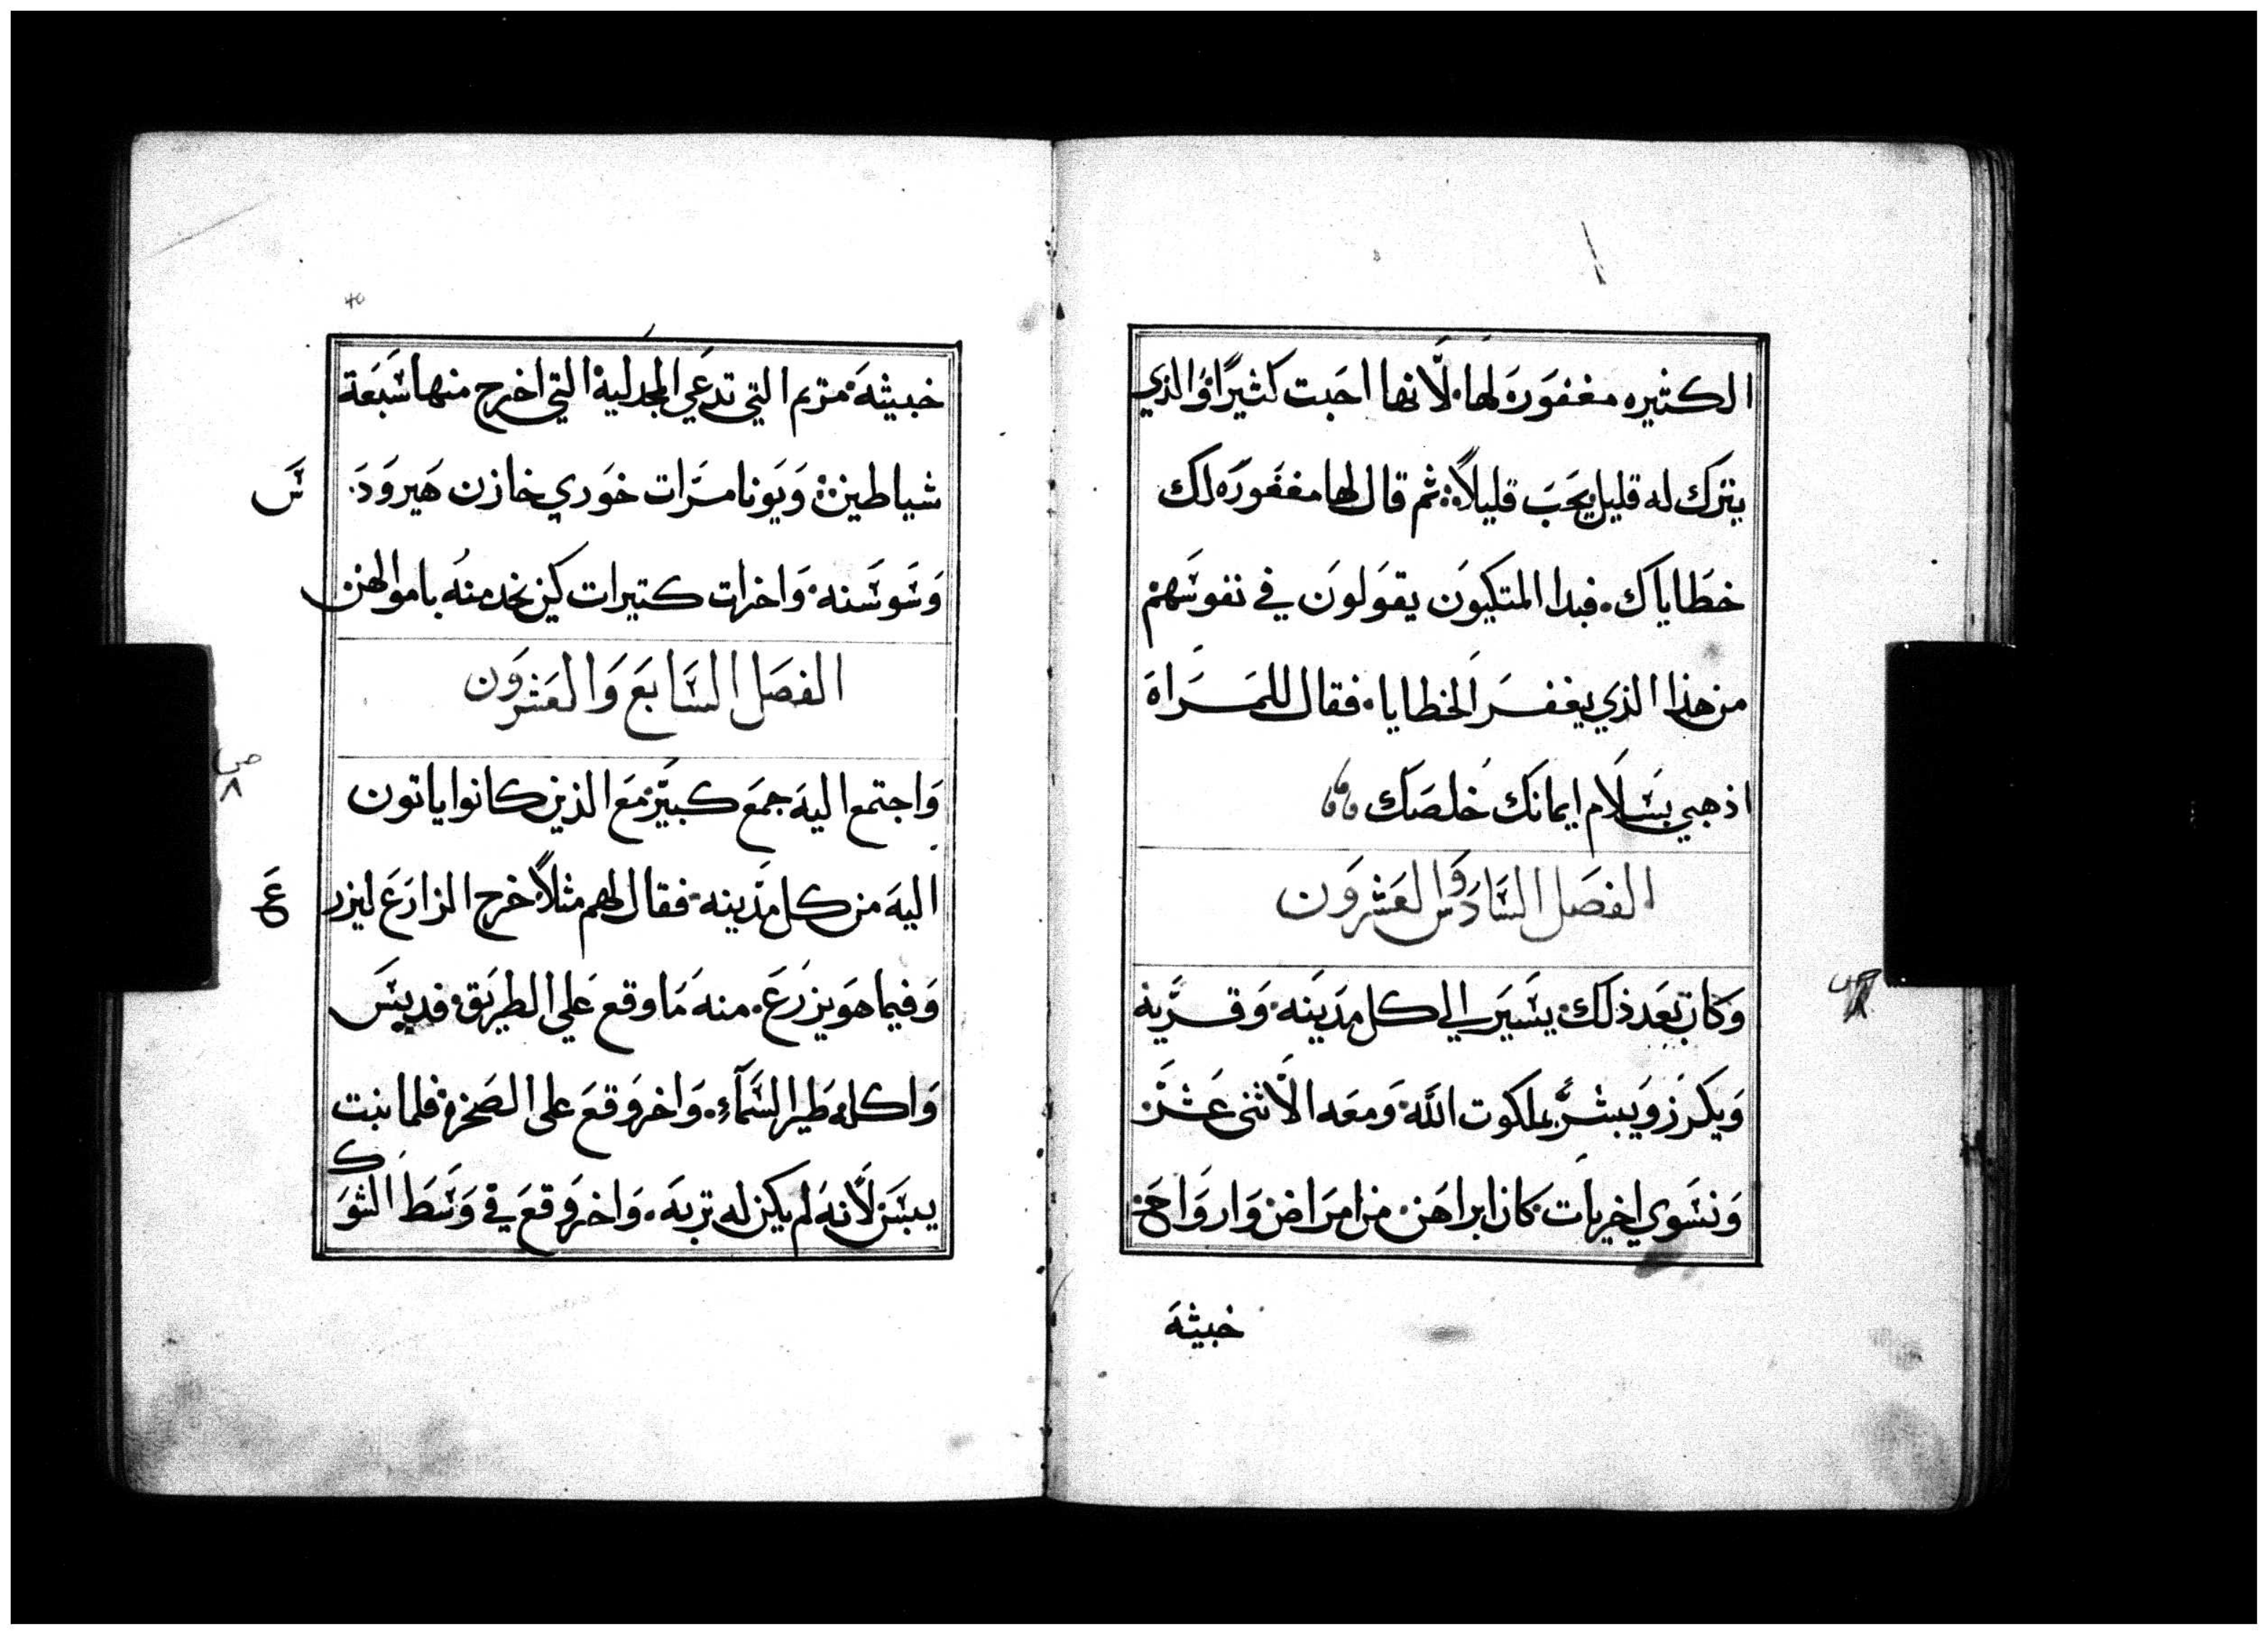 الكثيره مغفوره لها. لانها احبت كثيرًا والذي
يترك له قليل يحب قليلاً. ثم قال لها مغفوره لك
خطاياك. فبدا المتكيون يقولون في نفوسهم
من هذا الذي يغفر الخطايا. فقال للمراه
اذهبي بسلام ايمانك خلصك
الفصل السادس والعشرون
وكان بعد ذلك يسير الي كل مدينه. وقريه
ويكرز ويبشر بملكوت الله ومعه الاثنى عشر
ونسوي اخريات كان ابراهن. من امراض وارواح
خبيثه
خبيثه. مريم التي تدعي المجدلية التي اخرج منها سبعة
شياطين. ويونا مرات خوري خازن هيرود.
س
وسوسنه. واخرات كتيرات كن يخدمنه باموالهن
الفصل السابع والعشرون
ص ٨
واجتمع اليه جمع كبير مع الذين كانوا ياتون
اليه من كل مدينه. فقال لهم مثلاً خرج الزارع ليزر
ع
وفيما هو يزرع. منه ما وقع علي الطريق. فديس
واكله طير السمآء. واخر وقع على الصخره فلما نبت
يبس لانه لم يكن له تربه. واخر وقع في وسط الشوك